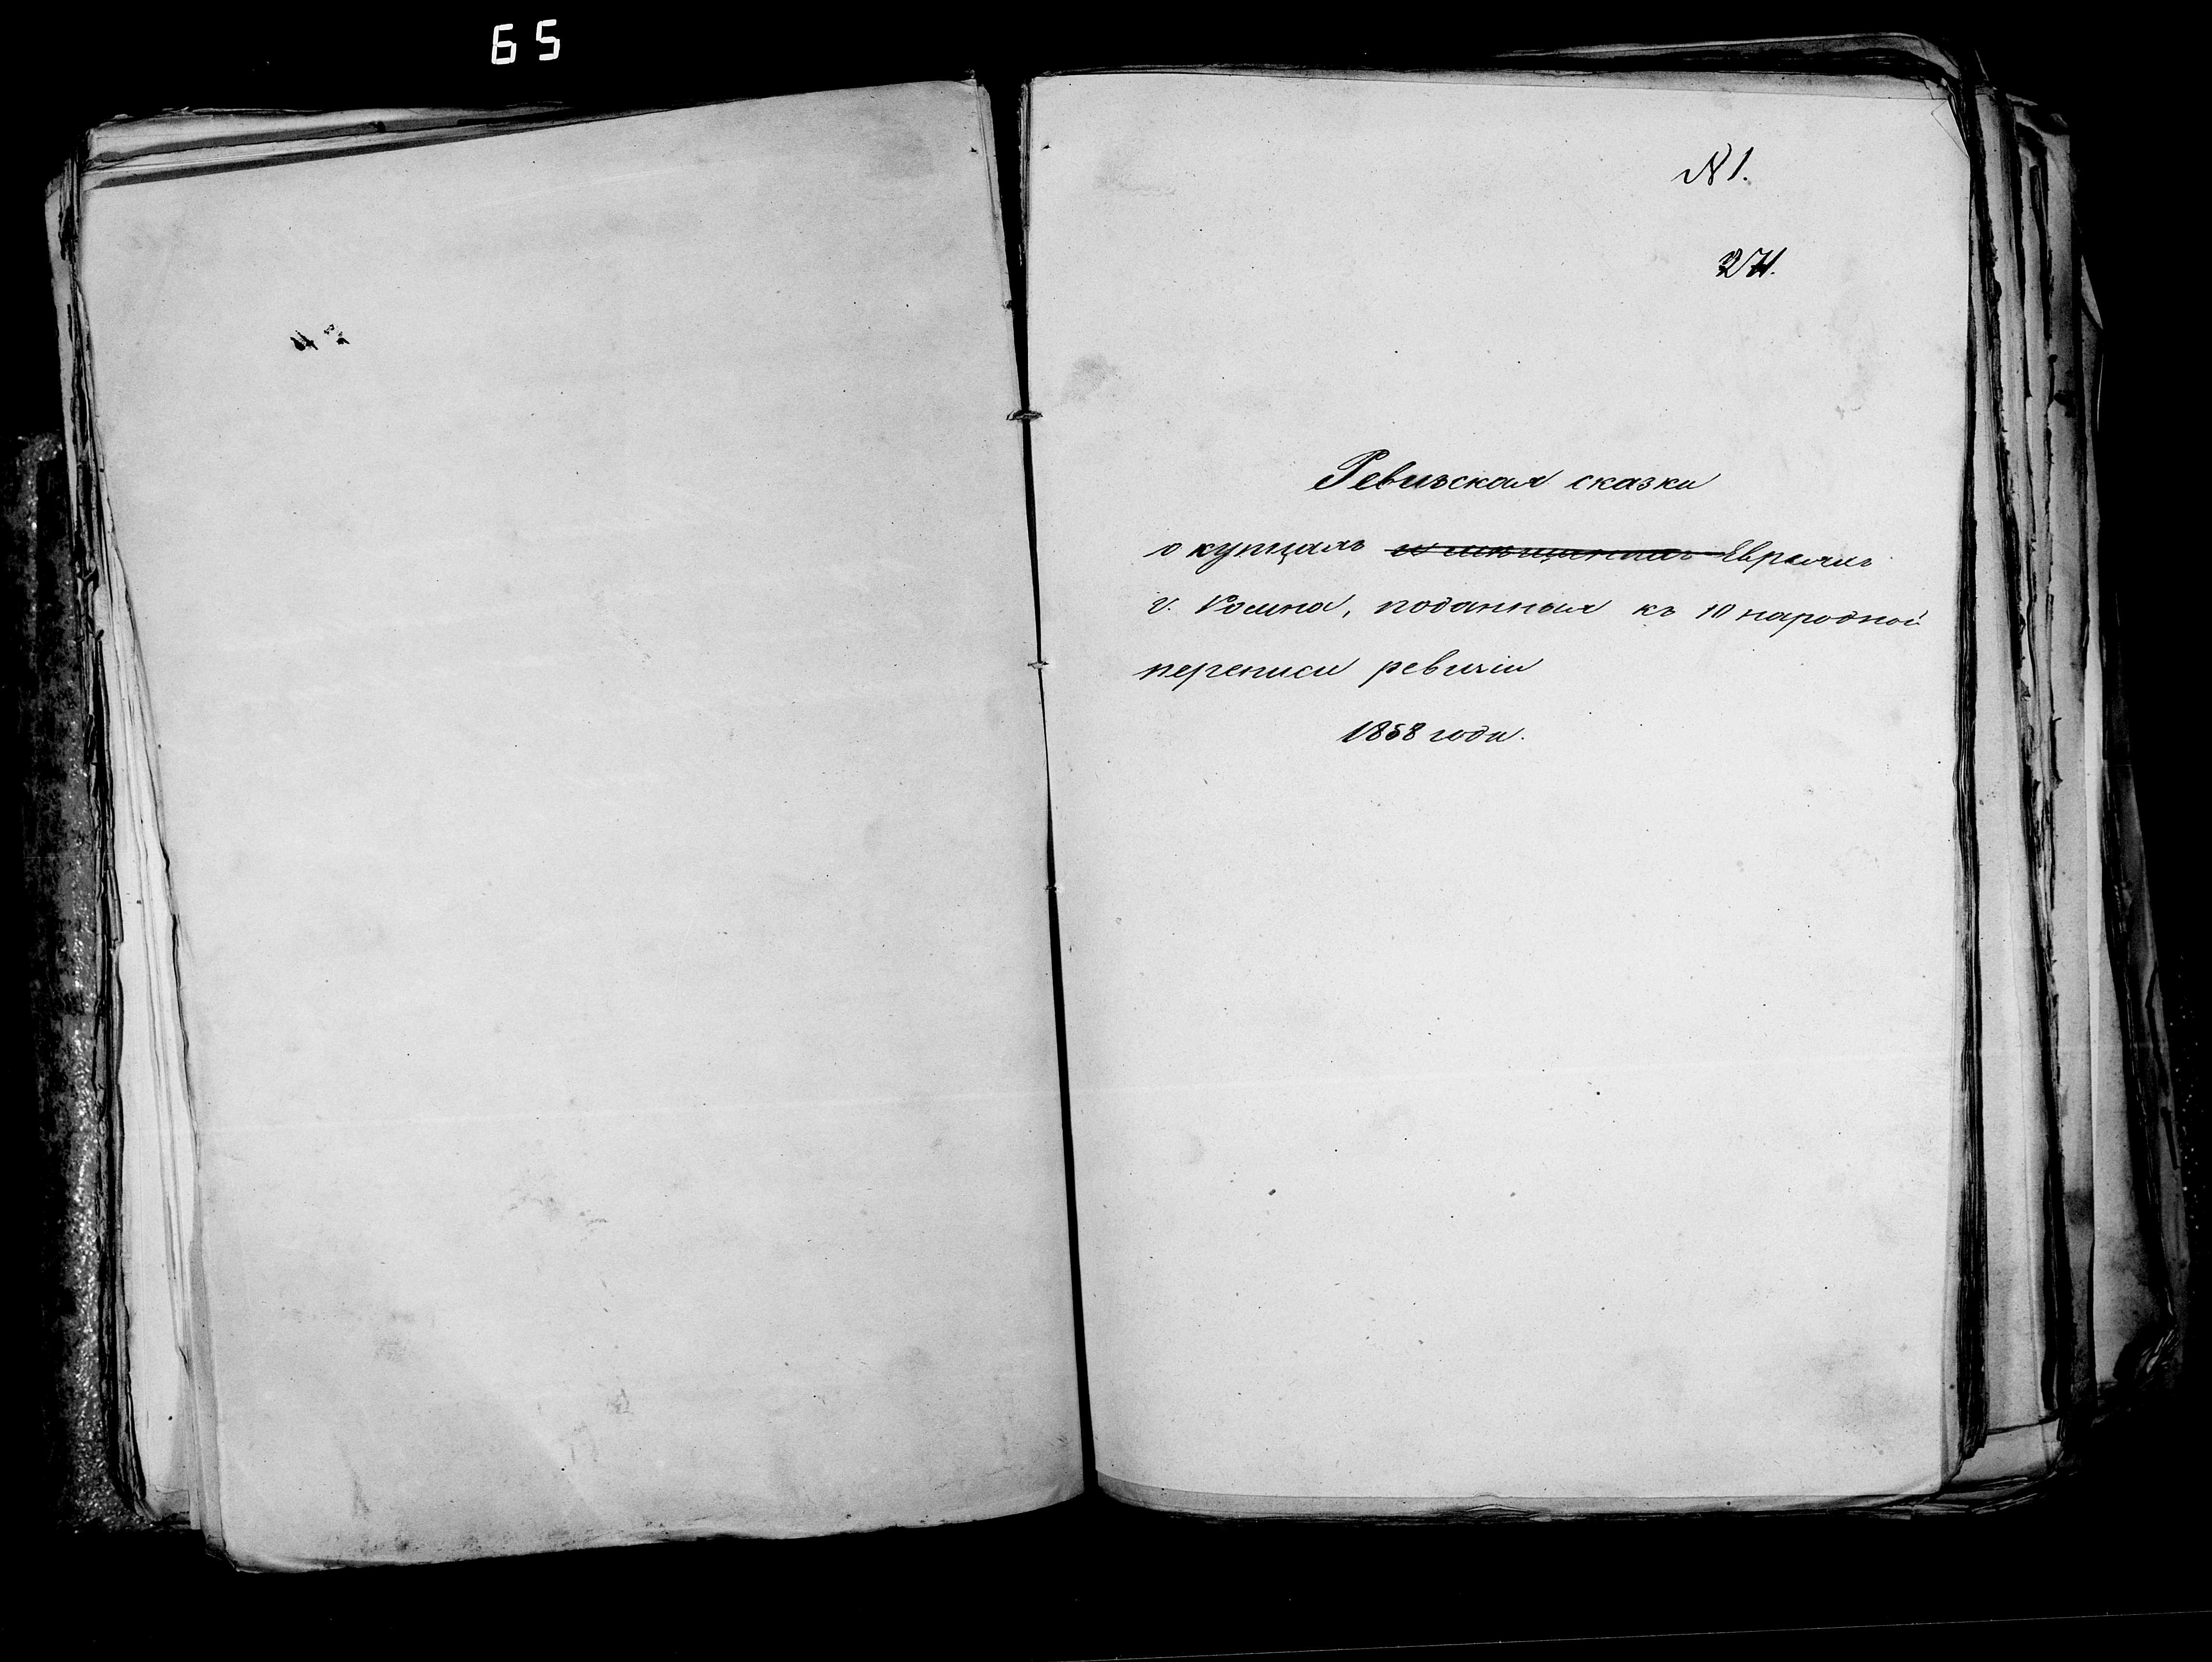 65
№ 1.
271.
Ревизская сказки
о купцахъ и мѣщанахъ Евреяхъ
г. Ромна, поданныя къ 10 народной
переписи ревизіи
1858 года.